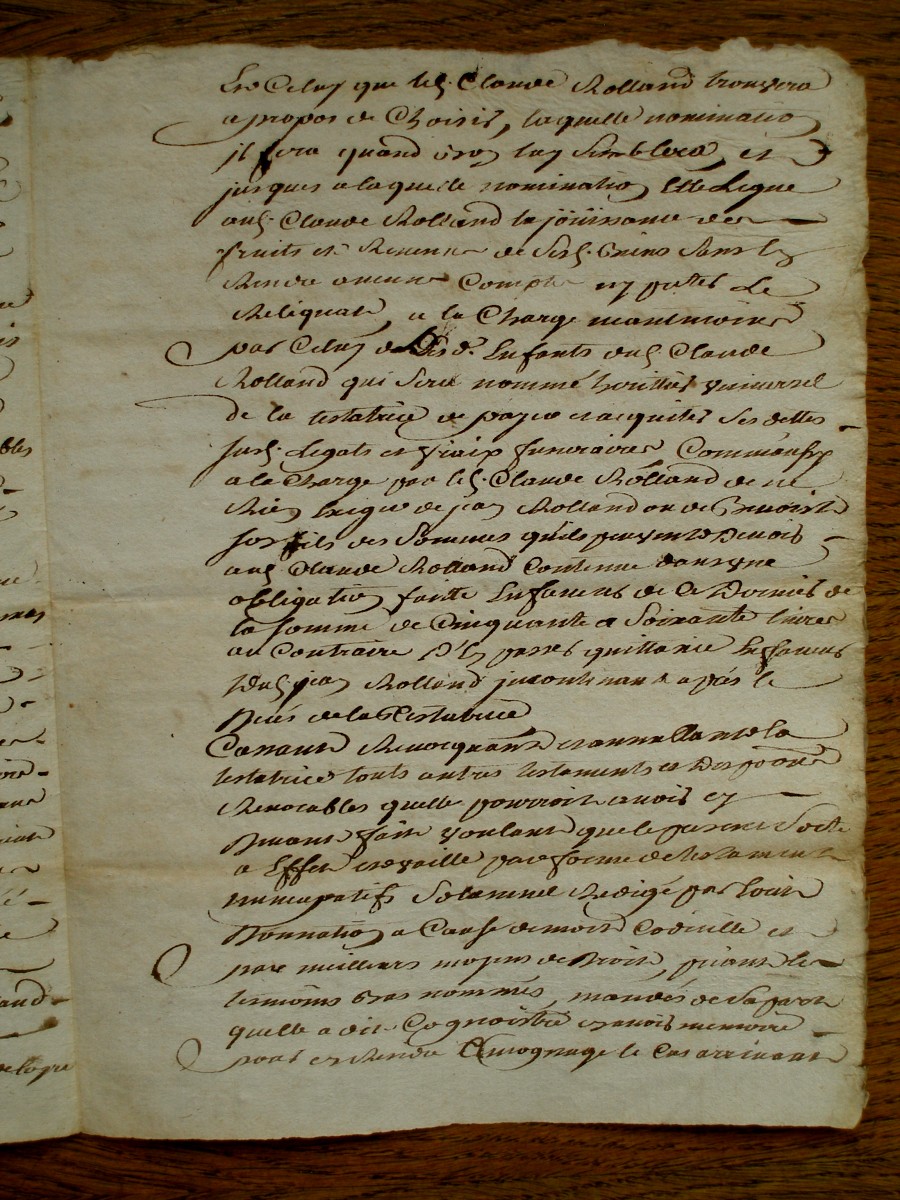 Et Celuy que led. Claude Rolland trouvera
a propos de Choisir, laquelle nomination
il fera quand bon luy Semblera, et
jusques a laquelle nomination Elle Legue
aud. Claude Rolland la joüissance des
fruits et Revenus de Sesd. biens Sans luy
Rendre aucun Compte ny prester Le
Reliquat, a la Charge neantmoins
par Celuy desd. Enfants dud. Claude
Rolland qui Sera nommé heritier universel
de la testatrice de payer et acquiter Ses dettes
susd. Legats et fraix funeraires
a la Charge par led. Claude Rolland de ne
Rien Exiger de jean Rolland ou de Benoist
son fils des Sommes quils peuvent Devoir
aud. Claude Rolland Contenue dans une
obligation faitte En faveur de Ce Dernier de
la somme de Cinquante a Soixante livres
au Contraire passer quittance En faveur
dud. jean Rolland incontinant aprés le
Decés de la Testatrice
Cassant Revocquant et annullant la
testatrice touts autres testaments et Disp.ons
Revocables quelle pourroit avoir cy
Devant fait voulant que le present Sorte
a Effet et vaille par forme de testament
nuncupatif Solamnel Redigé par Escrit
Donnation a Cause de mort Codicille et
par meilleurs moyens de Droit, priant les
temoins bas nommés, mandés de Sa part
quelle a dit Cognoistre et avoir memoire
pour en Rendre temognage le Cas arrivant